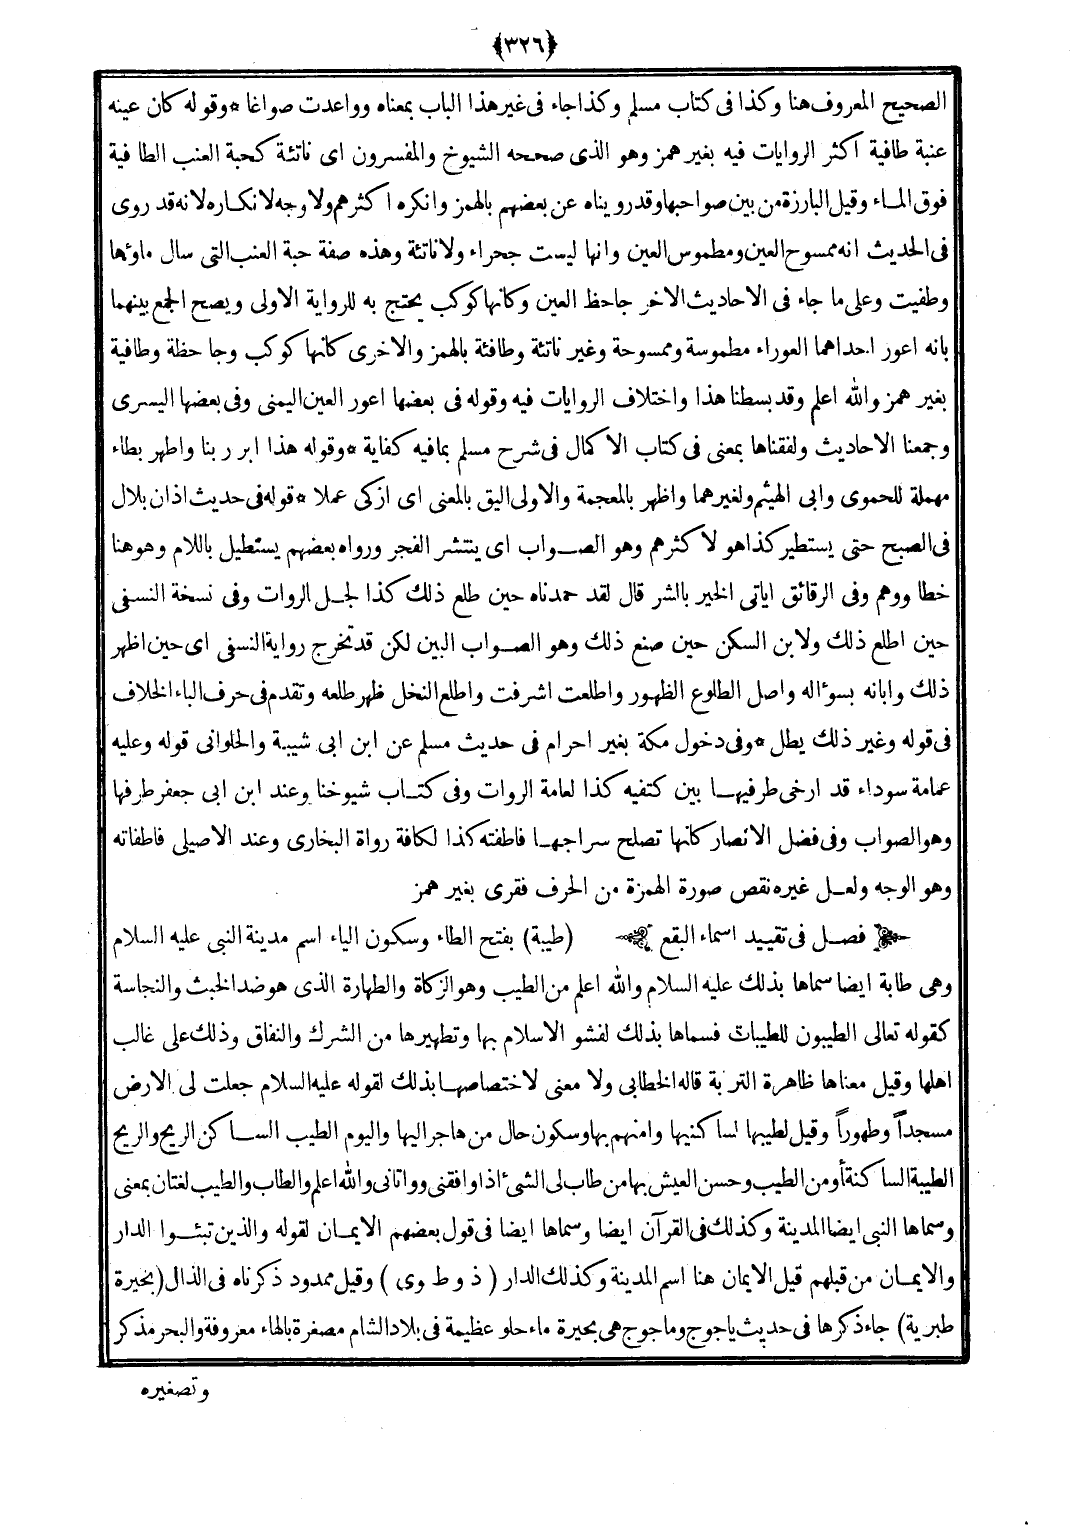 ﴿٣٢٦﴾
الصحيح المعروف هنا وكذا فى كتاب مسلم وكذا جاء فى غير هذا الباب بمعناه وواعدت صواغا * وقوله كان عينه
عنبة طافية أكثر الروايات فيه بغير همز وهو الذى صححه الشيوخ والمفسرون اى ناتئة كحبة العنب الطافية
فوق الماء وقيل البارزة من بين صواحبها وقد رويناه عن بعضهم بالهمز وانكره اكثرهم ولا وجه لانكاره لانه قد روى
فى الحديث انه ممسوح العين ومطموس العين وانها ليست جحراء ولا ناتئة وهذه صفة حبة العنب التى سال ماؤها
وطفيت وعلى ما جاء فى الاحاديث الاخر جاحظ العين وكانها كوكب يحتج به للرواية الاولى ويصح الجمع بينهما
بانه اعور احداهما العوراء مطموسة وممسوحة وغير ناتئة وطافئة بالهمز والاخرى كانها كوكب وجاحظة وطافية
بغير همز والله اعلم وقد بسطنا هذا واختلاف الروايات فيه وقوله فى بعضها اعور العين اليمنى وفى بعضها اليسرى
وجمعنا الاحاديث ولفقناها بمعنى فى كتاب الاكمال فى شرح مسلم بما فيه كفاية * وقوله هذا ابر ربنا واطهر بطاء
مهملة للحموى وابى الهيثم ولغيرهما واظهر بالمعجمة والاولى اليق بالمعنى اى ازكى عملا * قوله فى حديث اذان بلال
فى الصبح حتى يستطير كذا هو لاكثرهم وهو الصواب اى ينتشر الفجر ورواه بعضهم يستطيل باللام وهو هنا
خطا ووهم وفى الرقائق اياتى الخير بالشر قال لقد حمدناه حين طلع ذلك كذا لجل الروات وفى نسخة النسفى
حين اطلع ذلك ولابن السكن حين صنع ذلك وهو الصواب البين لكن قد تخرج رواية النسفى اى حين اظهر
ذلك وابانه بسوٴاله واصل الطلوع الظهور واطلعت اشرفت واطلع النخل ظهر طلعه وتقدم فى حرف الباء الخلاف
فى قوله وغير ذلك يطل * وفى دخول مكة بغير احرام فى حديث مسلم عن ابن ابى شيبة والحلوانى قوله وعليه
عمامة سوداء قد ارخى طرفيها بين كتفيه كذا لعامة الروات وفى كتاب شيوخنا وعند ابن ابى جعفر طرفها
وهو الصواب وفى فضل الانصار كانها تصلح سراجها فاطفته كذا لكافة رواة البخارى وعند الاصيلى فاطفاته
وهو الوجه ولعل غيره نقص صورة الهمزة من الحرف فقرى بغير همز
فصل فى تقييد اسماء البقع (طيبة) بفتح الطاء وسكون الياء اسم مدينة النبى عليه السلام
وهى طابة ايضا سماها بذلك عليه السلام والله اعلم من الطيب وهو الزكاة والطهارة الذى هو ضد الخبث والنجاسة
كقوله تعالى الطيبون للطيبات فسماها بذلك لفشو الاسلام بها وتطهيرها من الشرك والنفاق وذلك على غالب
اهلها وقيل معناها ظاهرة التربة قاله الخطابى ولا معنى لاختصاصها بذلك لقوله عليه السلام جعلت لى الارض
مسجداً وطهوراً وقيل لطيبها لساكنيها وامنهم بها وسكون حال من هاجر اليها واليوم الطيب الساكن الريح والريح
الطيبة الساكنة أو من الطيب وحسن العيش بها من طاب لى الشىٴ اذا وافقنى وواتانى والله اعلم والطاب والطيب لغتان بمعنى
وسماها النبى ايضا المدينة وكذلك فى القرآن ايضا وسماها ايضا فى قول بعضهم الايمان لقوله والذين تبئوا الدار
والايمان من قبلهم قيل الايمان هنا اسم المدينة وكذلك الدار ( ذو طوى ) وقيل ممدود ذكرناه فى الذال (بحيرة
طبرية) جاء ذكرها فى حديث ياجوج وماجوج هى بحيرة ماء حلو عظيمة فى بلاد الشام مصغرة بالهاء معروفة والبحر مذكر
وتصغيره